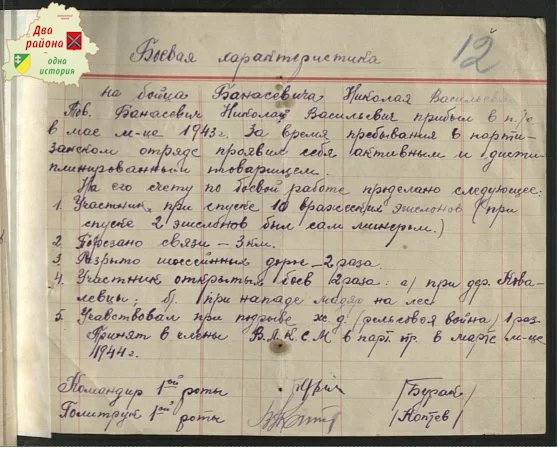 Два
района
одна
история
12
Боевая характеристика
на бойца Банасевича Николая
Тов. Банасевич Николай Васильевич прибыл в п/о
в мае м-це 1943 г. За время пребывания в парти-
занском отряде проявил себя активным и дисци-
плинированным товарищем.
На его счету по боевой работе проделано следующее:
1. Участник при спуске 10 вражеских эшелонов (при
спуске 2 эшелонов был сам минером.)
2. Порезано связи – 3 км.
3. Разрыто шоссейных дорог – 2 раза.
4. Участник открытых боев 2 раза: а) при дер. Кова-
левцы; б) при нападе мадяр на лес
5. Участвовал при подрыве ж.д. (рельсовая война) 1 раз.
Принят в члены В.Л.К.С.М в парт. в марте м-це
1944 г.
Командир 1ой роты /Бурак/
Политрук 1ой роты /Коптев/